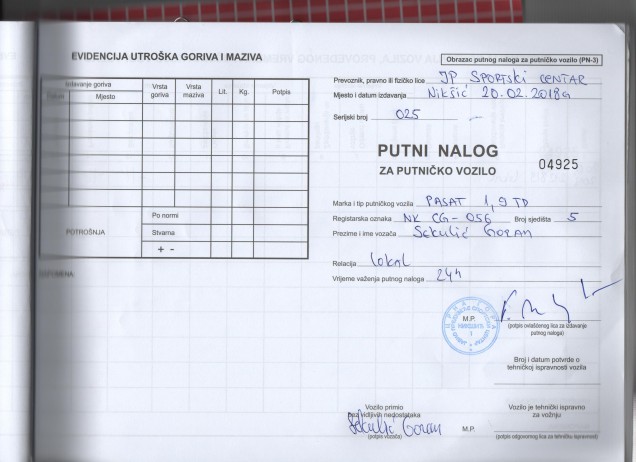 EVIDENCIJA UTROŠKA GORIVA I MAZIVA
Izdavanje goriva
Datum Mjesto
Vrsta goriva
Vrsta maziva
Lit.
Kg.
Potpis
POTROŠNJA
Po normi
Stvarna
+ -
NAPOMENA:
Obrazac putnog naloga za putničko vozilo (PN-3)
Prevoznik, pravno ili fizičko lice JP SPORTSKI CENTAR
Mjesto i datum izdavanja Nikšić 20.02.2018g
Serijski broj 025
PUTNI NALOG
ZA PUTNIČKO VOZILO
04925
Marka i tip putničkog vozila PASAT 1,9 TD
Registarska oznaka NK CG-056 Broj sjedišta 5
Prezime i ime vozača Sekulić Goran
Relacija Lokal
Vrijeme važenja putnog naloga 24h
M.P.
(potpis ovlašćenog lica za izdavanje
putnog naloga)
Broj i datum potvrde o
tehničkoj ispravnosti vozila
Vozilo primio
bez vidljivih nedostataka
Sekulić Goran
(potpis vozača)
M.P.
Vozilo je tehnički ispravno
za vožnju
(potpis odgovornog lica za tehnički ispravnost)